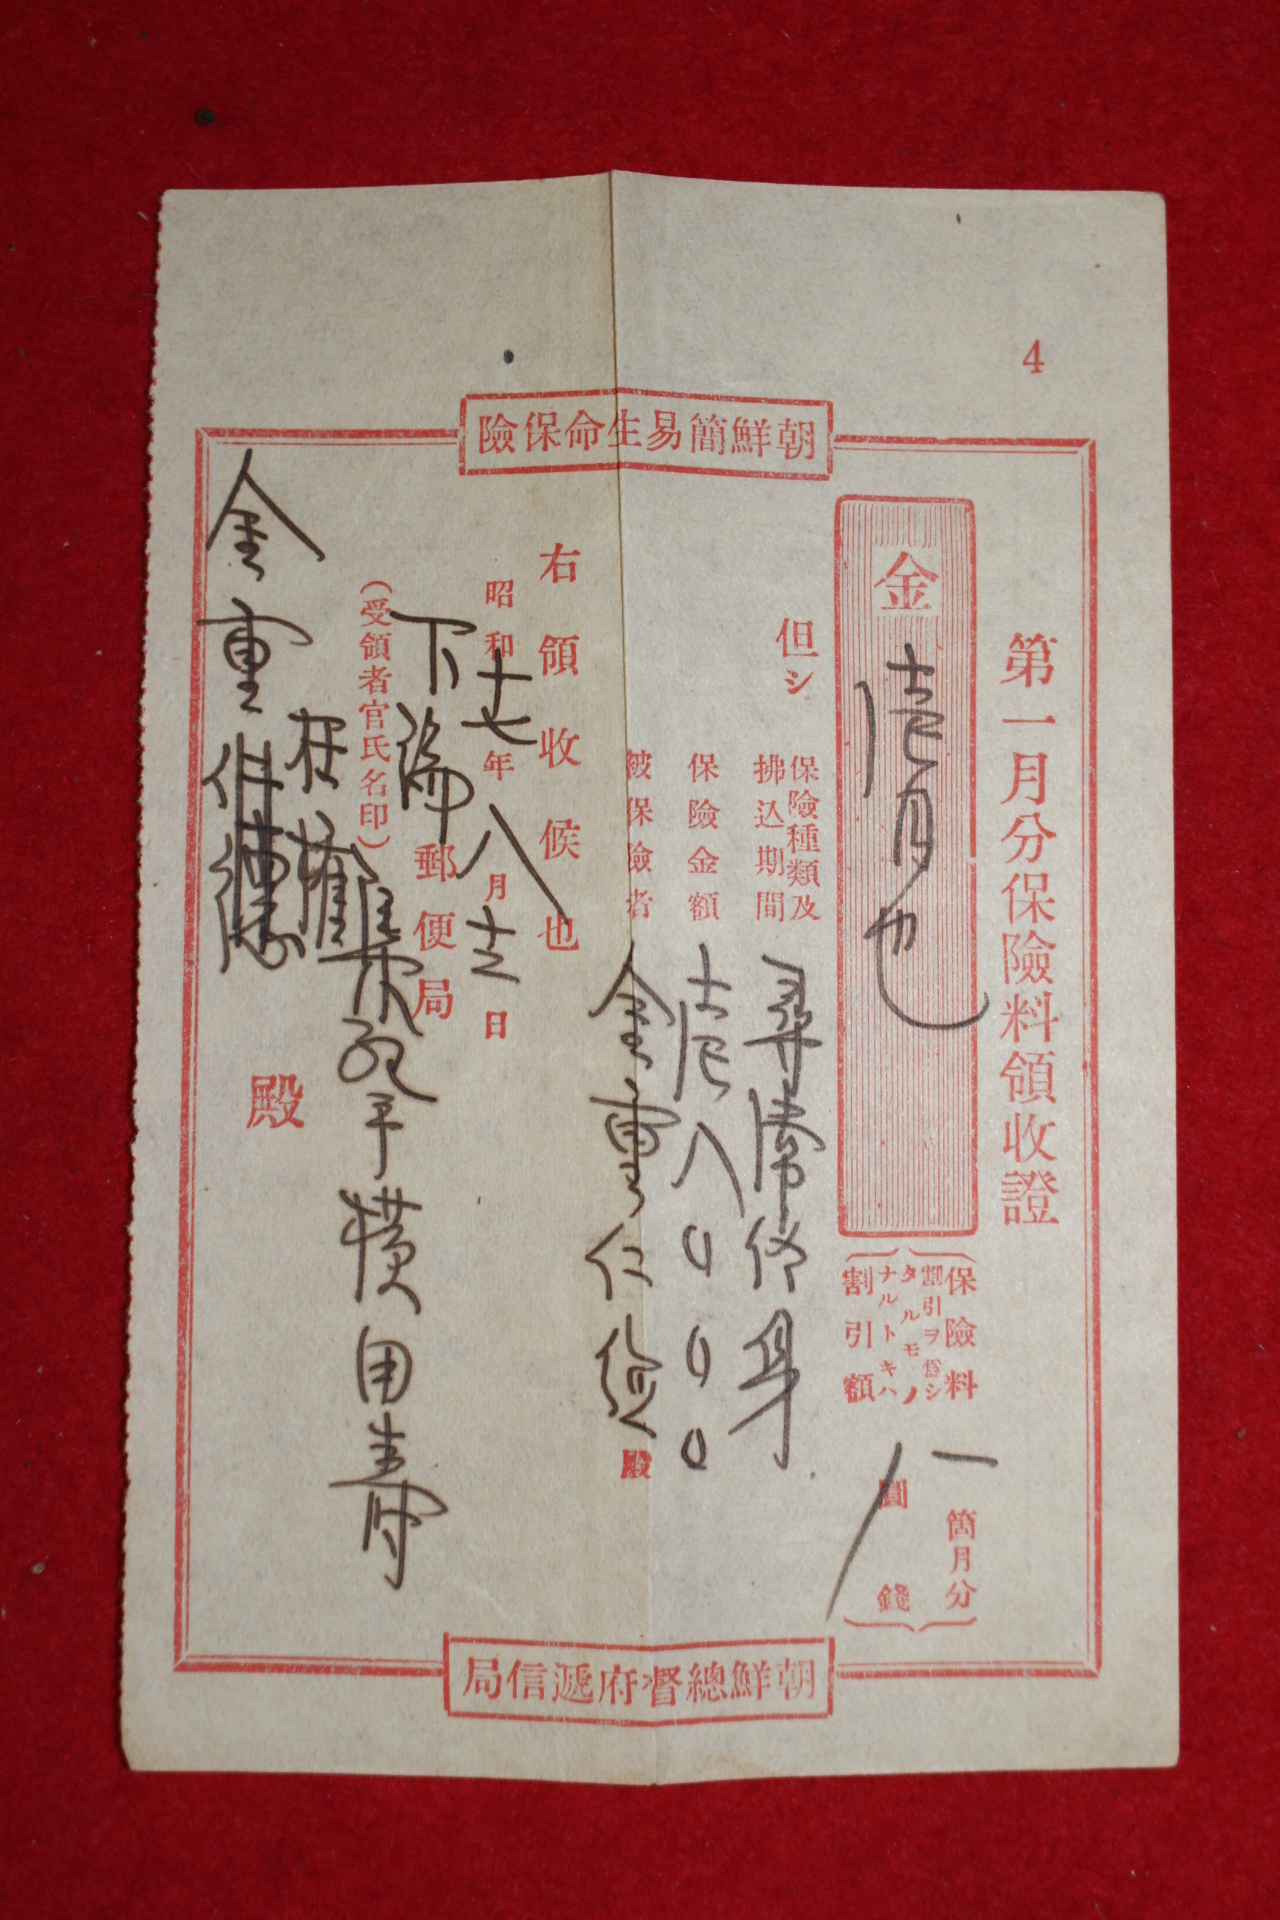 4
朝鮮簡易生命保險
第一月分保險料領收證
金 壱円也
保險料 一 箇月分
割引ヲ爲シタルモノナルトキハ割引額 圓 錢
但シ
保險種類及拂込期間 尋常終身
保險金額
被保險者 金重仁 殿
右領收候也
昭和十七年八月 日
下 郵便局
(受領者官氏名印)
金重 殿
朝鮮總督府遞信局